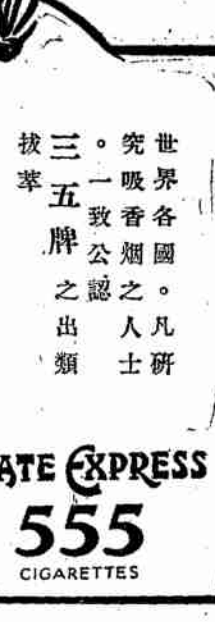 世界各國。凡研
究吸香烟之人士
。一致公認
三五牌之出類
拔萃
ATE EXPRESS
555
CIGARETTES